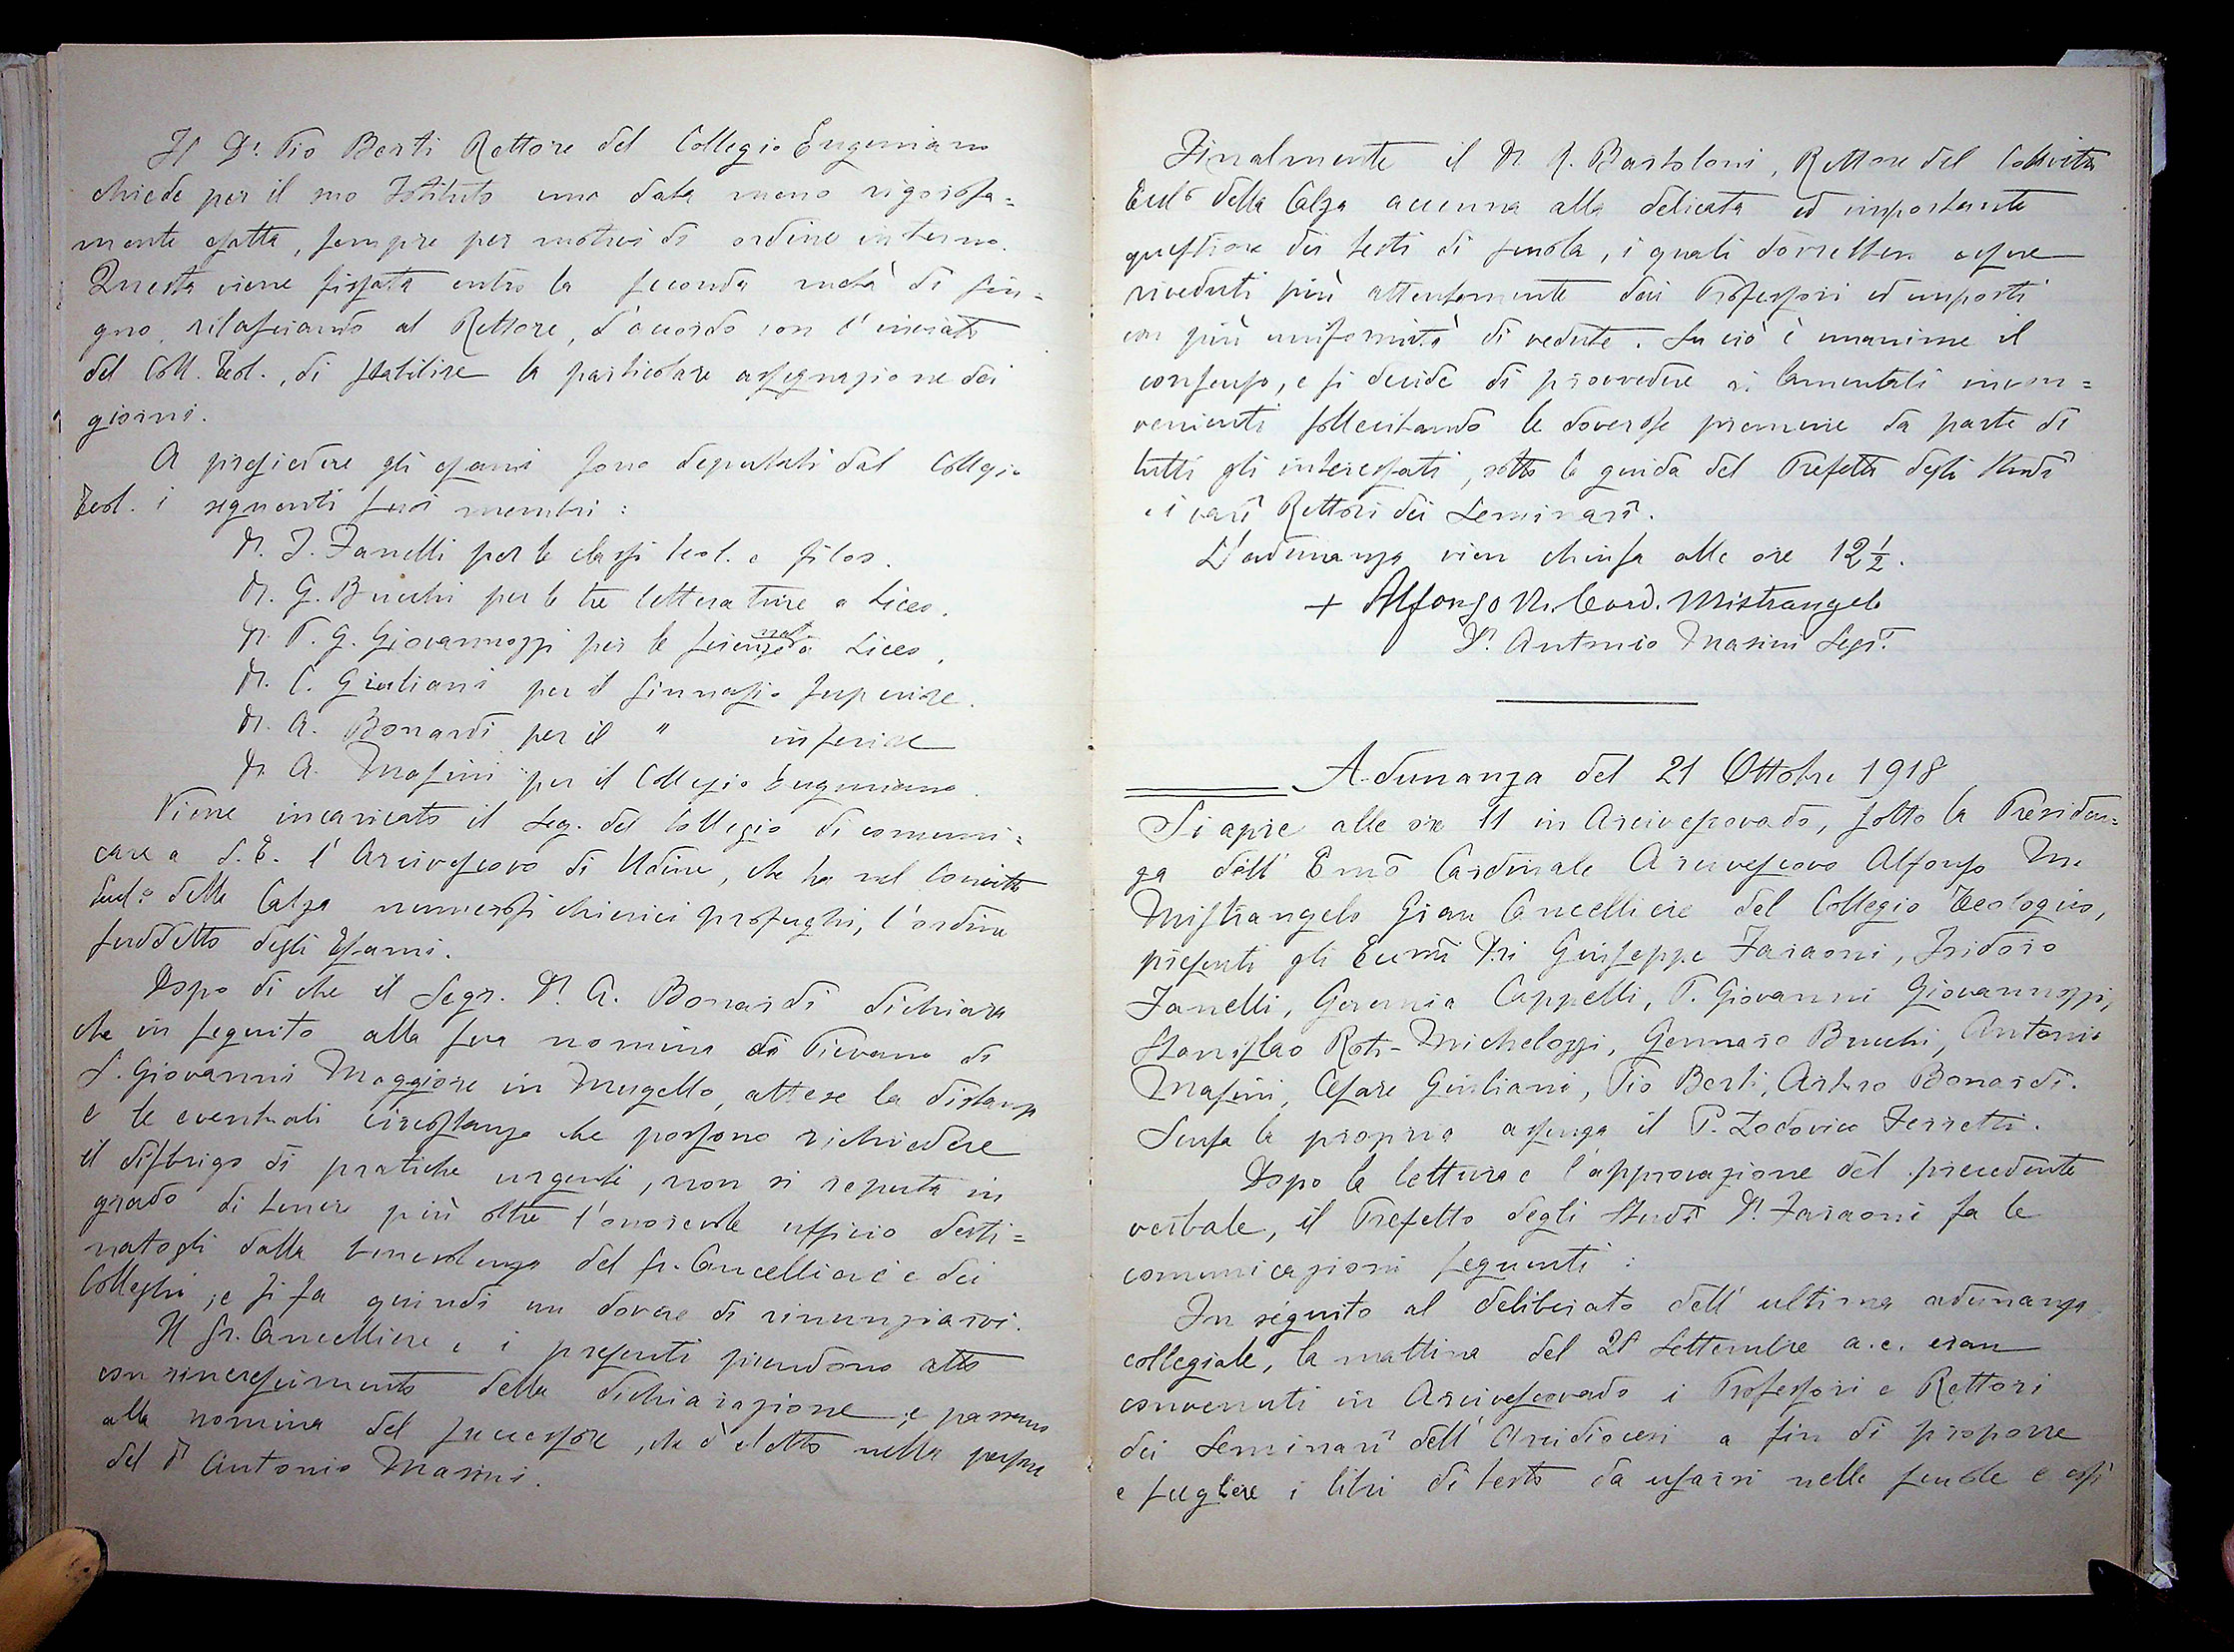 Il Dr. Pio Berti Rettore del Collegio Eugeniano
chiede per il suo Istituto una data meno rigorosa=
mente esatta, sempre per motivi di ordine interno.
Questa viene fissata entro la seconda metà di giu=
gno, rilasciando al Rettore, d'accordo con l'inviato
del Coll. Teol., di stabilire la particolare assegnazione dei
giorni.
A presiedere gli esami sono deputati dal Collegio
Teol. i seguenti suoi membri:
Dr. I. Fanelli per le classi teol. e filos.
Dr. G. Bucchi per le tre letterature a Liceo.
Dr. P. G. Giovannozzi per le scienze nat. a Liceo.
Dr. C. Giuliani per il Ginnasio superiore.
Dr. A. Bonardi per il " inferiore
Dr. A. Masini per il Collegio Eugeniano.
Viene incaricato il Seg. del Collegio di comuni=
care a S.E. l'Arcivescovo di Udine, che ha nel Convitto
Eccl.º della Calza numerosi chierici profughi, l'ordine
suddetto degli Esami.
Dopo di che il Segr. Dr. A. Bonardi dichiara
che in seguito alla sua nomina di Pievano di
S. Giovanni Maggiore in Mugello, attese la distanza
e le eventuali circostanze che possono richiedere
il disbrigo di pratiche urgenti, non si reputa in
grado di tenere più oltre l'onorevole ufficio desti=
natogli dalla benevolenza del Gr. Cancelliere e dei
Colleghi; e si fa quindi un dovere di rinunziarvi.
Il Gr. Cancelliere e i presenti prendono atto
con rincrescimento della dichiarazione; e passano
alla nomina del successore, che è eletto nella persona
del Dr Antonio Masini.
Finalmente il Dr. A. Bartoloni, Rettore del Convitto
Eccl.º della Calza accenna alla delicata ed importante
questione dei testi di scuola, i quali dovrebbero essere
riveduti più attentamente dai Professori ed imposti
con più uniformità di vedute. Su ciò è unanime il
consenso, e si decide di provvedere ai lamentati incon=
venienti sollecitando le doverose premure da parte di
tutti gli interessati, sotto la guida del Prefetto degli Studî
e i varî Rettori dei Seminarî.
L'adunanza vien chiusa alle ore 12½.
+ Alfonso M. Card. Mistrangelo
Dr. Antonio Masini Segr.
Adunanza del 21 Ottobre 1918
Si apre alle ore 11 in Arcivescovado, sotto la Presiden=
za dell'Emo Cardinale Arcivescovo Alfonso Ma
Mistrangelo Gran Cancelliere del Collegio Teologico,
presenti gli Eccmi Dri Giuseppe Faraoni, Isidoro
Fanelli, Geremia Cappelli, P. Giovanni Giovannozzi,
Stanislao Roti-Michelozzi, Gennaro Bucchi, Antonio
Masini, Cesare Giuliani, Pio Berti, Arturo Bonardi.
Scusa la propria assenza il P. Lodovico Ferretti.
Dopo la lettura e l'approvazione del precedente
verbale, il Prefetto degli Studî Dr. Faraoni fa le
comunicazioni seguenti:
In seguito al deliberato dell'ultima adunanza
collegiale, la mattina del Settembre a.c. eran
convenuti in Arcivescovado i Professori e Rettori
dei Seminarî dell'Arcidiocesi a fin di proporre
e scegliere i libri di testo da usarsi nelle scuole e così